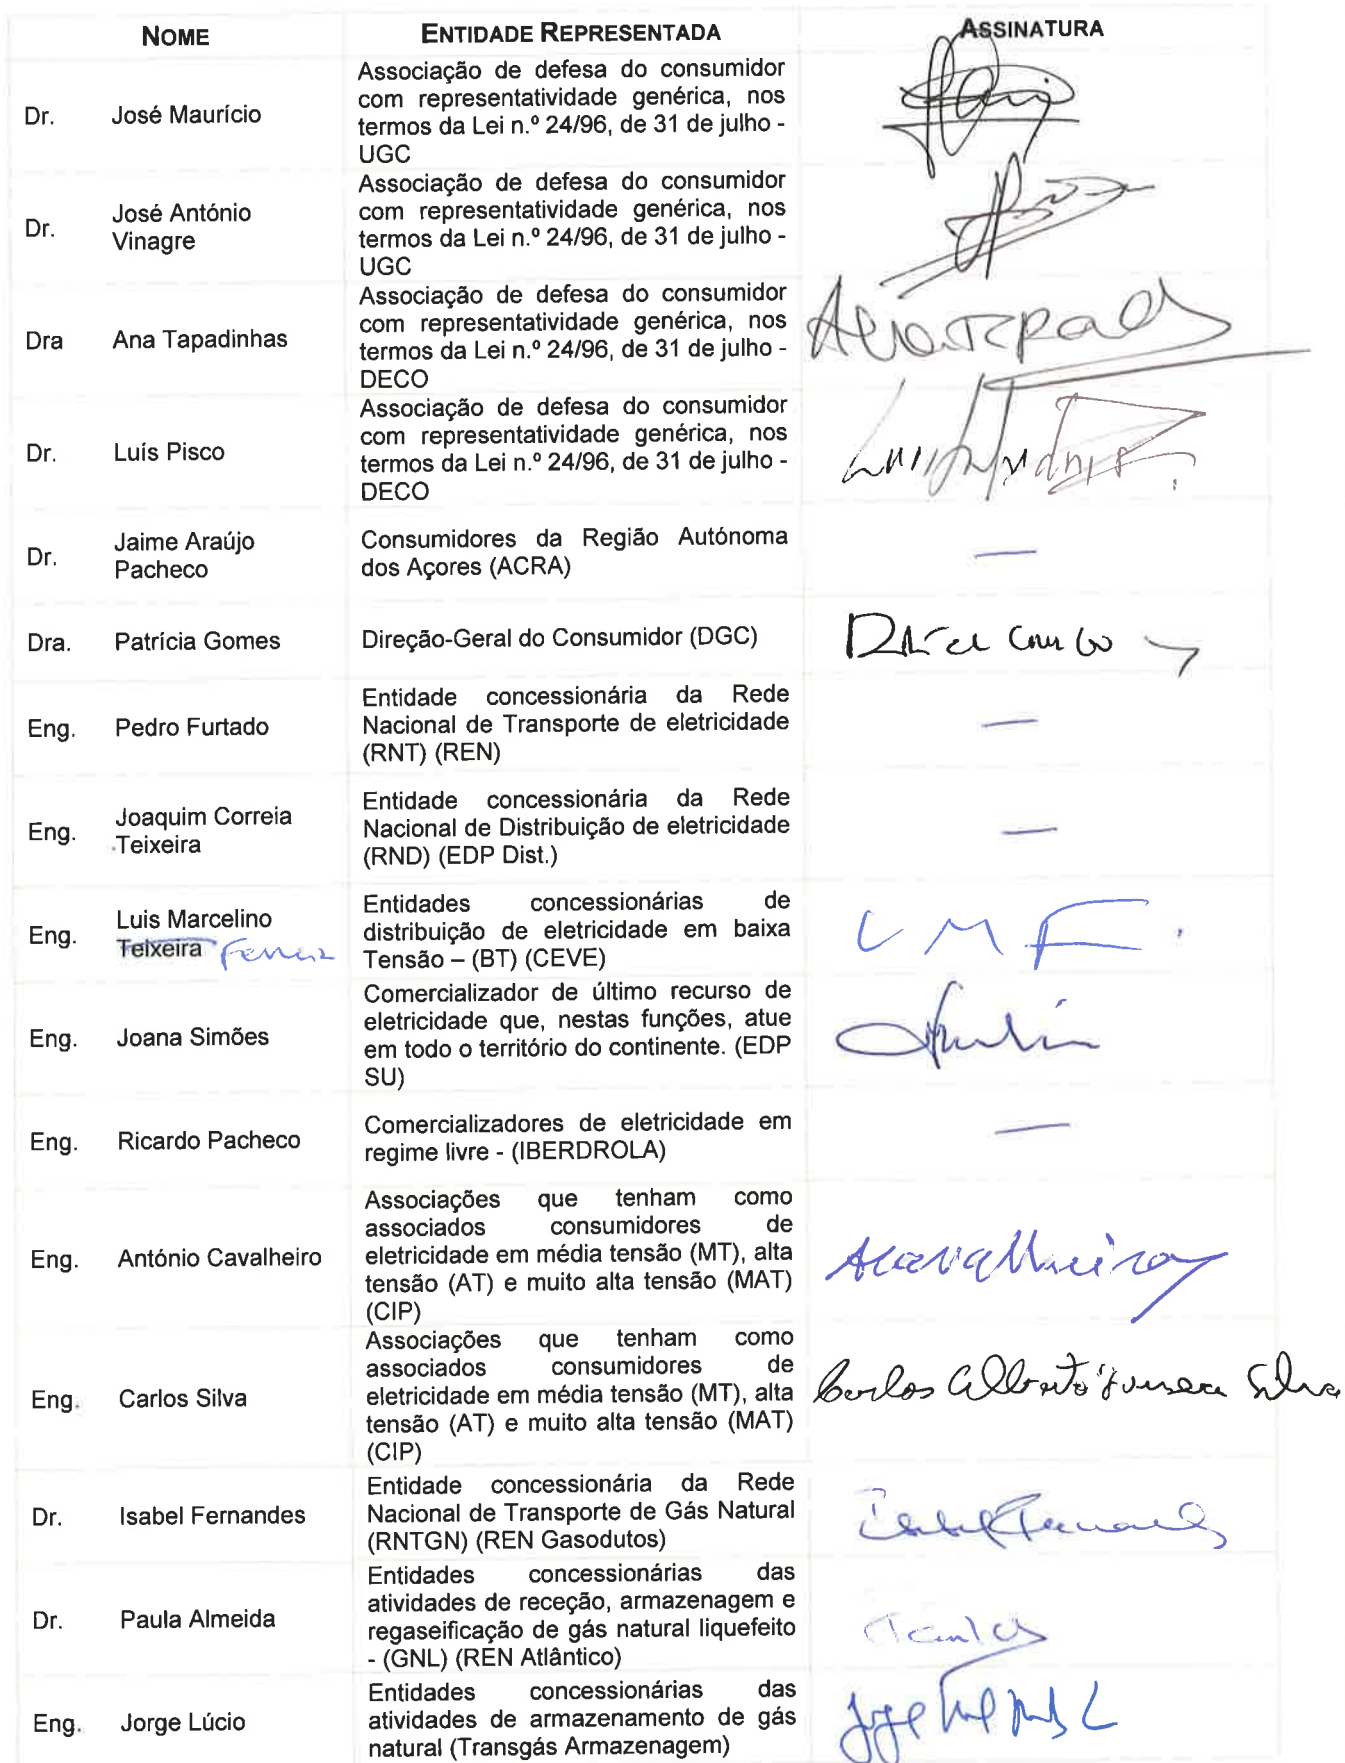 NOME ENTIDADE REPRESENTADA ASSINATURA
Dr. José Maurício
Associação de defesa do consumidor
com representatividade genérica, nos
termos da Lei n.º 24/96, de 31 de julho -
UGC
Dr. José António
Vinagre
Associação de defesa do consumidor
com representatividade genérica, nos
termos da Lei n.º 24/96, de 31 de julho -
UGC
Dra Ana Tapadinhas
Associação de defesa do consumidor
com representatividade genérica, nos
termos da Lei n.º 24/96, de 31 de julho -
DECO
Dr. Luís Pisco
Associação de defesa do consumidor
com representatividade genérica, nos
termos da Lei n.º 24/96, de 31 de julho -
DECO
Dr. Jaime Araújo
Pacheco
Consumidores da Região Autónoma
dos Açores (ACRA)
—
Dra. Patrícia Gomes
Direção-Geral do Consumidor (DGC)
Eng. Pedro Furtado
Entidade concessionária da Rede
Nacional de Transporte de eletricidade
(RNT) (REN)
—
Eng. Joaquim Correia
Teixeira
Entidade concessionária da Rede
Nacional de Distribuição de eletricidade
(RND) (EDP Dist.)
—
Eng. Luis Marcelino
Teixeira
Entidades concessionárias de
distribuição de eletricidade em baixa
Tensão – (BT) (CEVE)
L M F
Eng. Joana Simões
Comercializador de último recurso de
eletricidade que, nestas funções, atue
em todo o território do continente. (EDP
SU)
Eng. Ricardo Pacheco
Comercializadores de eletricidade em
regime livre - (IBERDROLA)
—
Eng. António Cavalheiro
Associações que tenham como
associados consumidores de
eletricidade em média tensão (MT), alta
tensão (AT) e muito alta tensão (MAT)
(CIP)
ACavalheiro
Eng. Carlos Silva
Associações que tenham como
associados consumidores de
eletricidade em média tensão (MT), alta
tensão (AT) e muito alta tensão (MAT)
(CIP)
Carlos Alberto Fonseca Silva
Dr. Isabel Fernandes
Entidade concessionária da Rede
Nacional de Transporte de Gás Natural
(RNTGN) (REN Gasodutos)
Isabel Fernandes
Dr. Paula Almeida
Entidades concessionárias das
atividades de receção, armazenagem e
regaseificação de gás natural liquefeito
- (GNL) (REN Atlântico)
Eng. Jorge Lúcio
Entidades concessionárias das
atividades de armazenamento de gás
natural (Transgás Armazenagem)